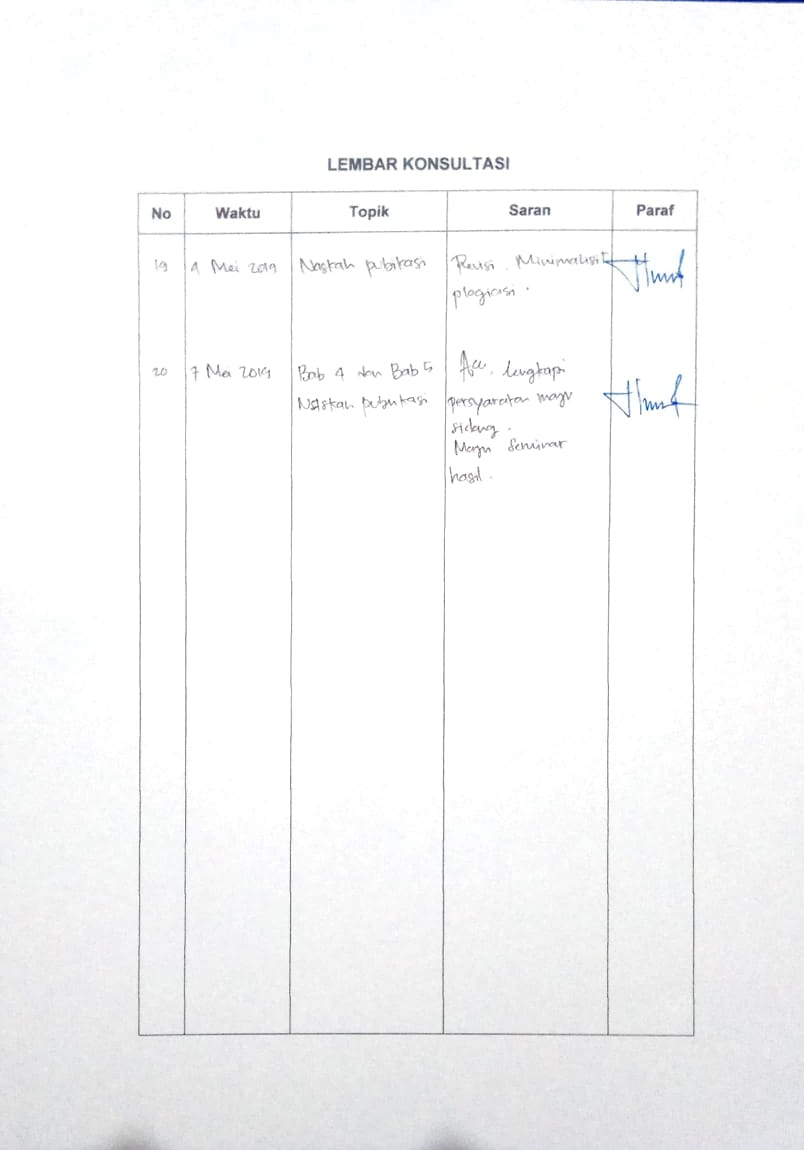 LEMBAR KONSULTASI
No Waktu Topik Saran Paraf
19 4 Mei 2019 Naskah publikasi Revisi. Minimalisir
plagiasi.
20 7 Mei 2019 Bab 4 dan Bab 5 Acc, lengkapi
Naskah publikasi persyaratan maju
sidang.
Maju Seminar
hasil.